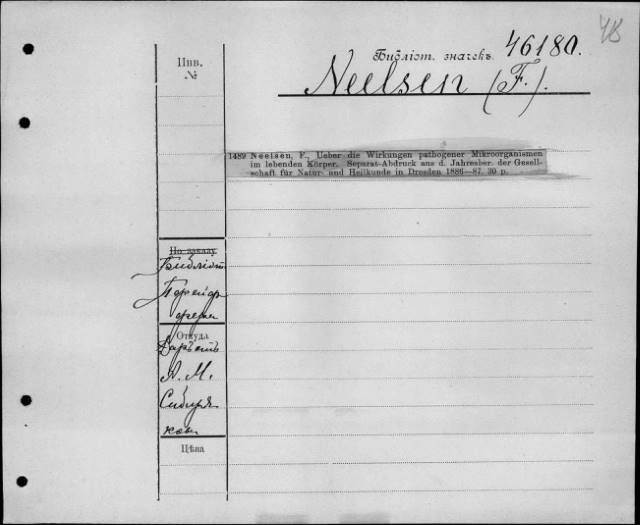 48
Библіот. значекъ 46180.
Инв. №
Neelsen (F.)
1489 Neelsen, F., Ueber die Wirkungen pathogener Mikroorganismen
im lebenden Körper. Separat-Abdruck aus d. Jahresber. der Gesell-
schaft für Natur- und Heilkunde in Dresden 1886—87. 30 p.
По заказу
Библіот.
Откуда
Даръ отъ
А. М.
Сибиря
кова
Цѣна